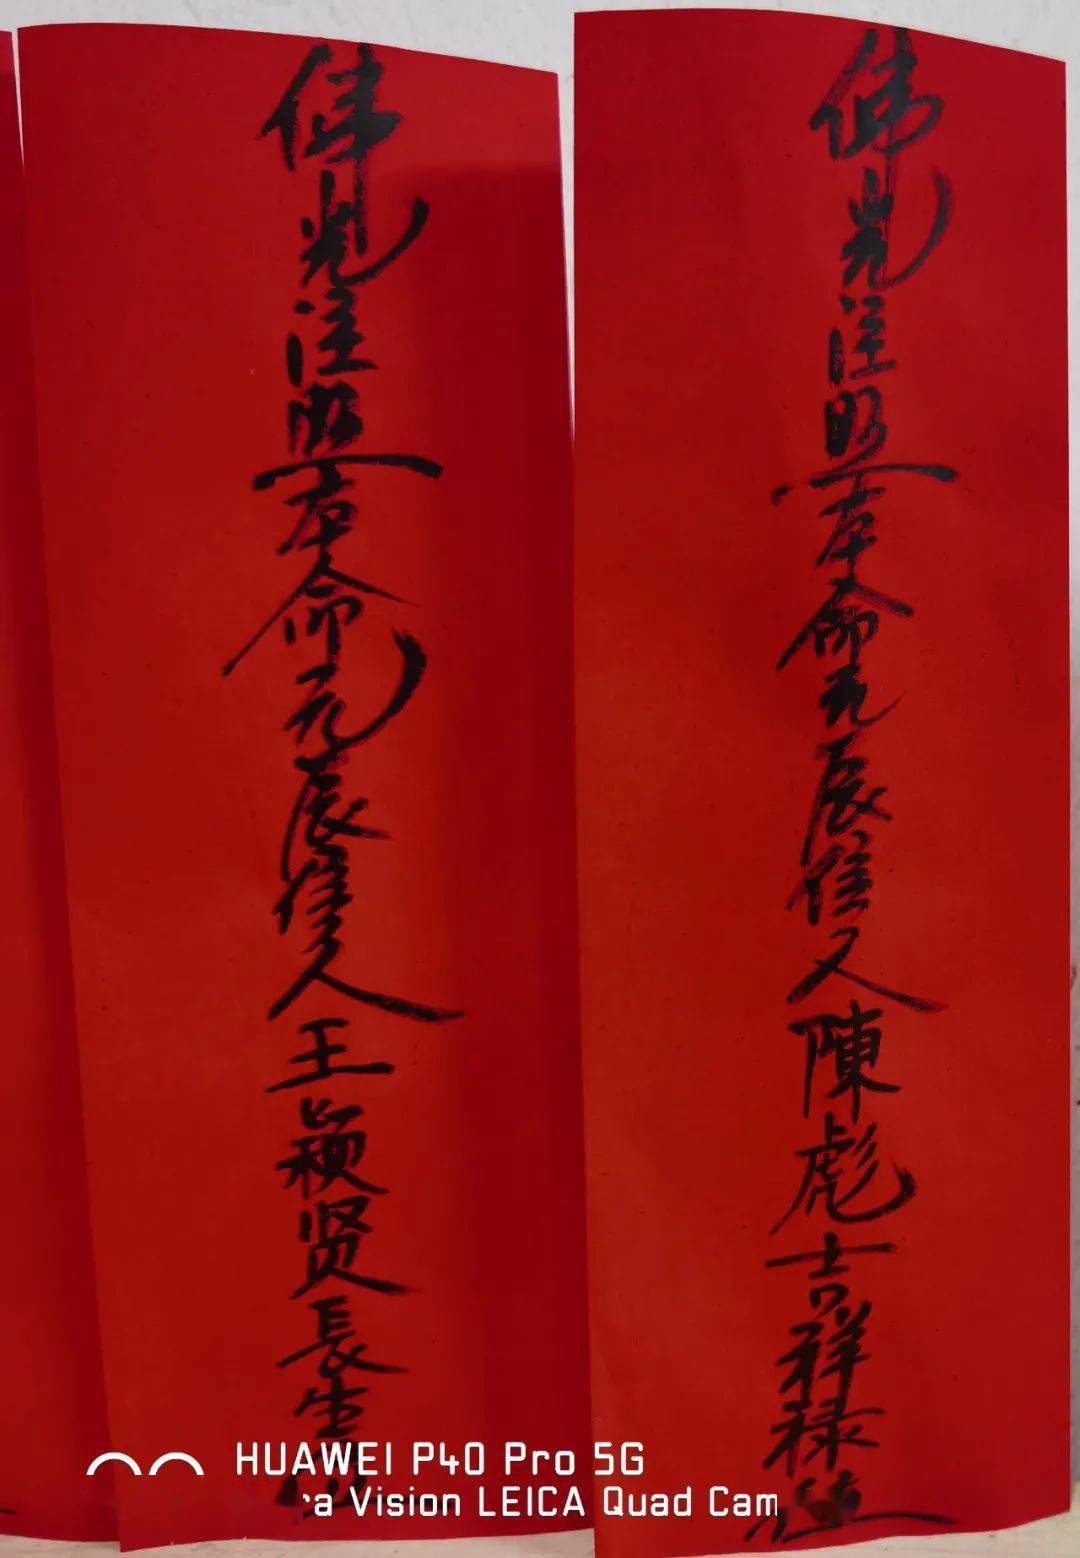 佛光注照本命元辰信人陳彪吉祥祿位
佛光注照本命元辰信人王颖贤長生
HUAWEI P40 Pro 5G
ra Vision LEICA Quad Cam